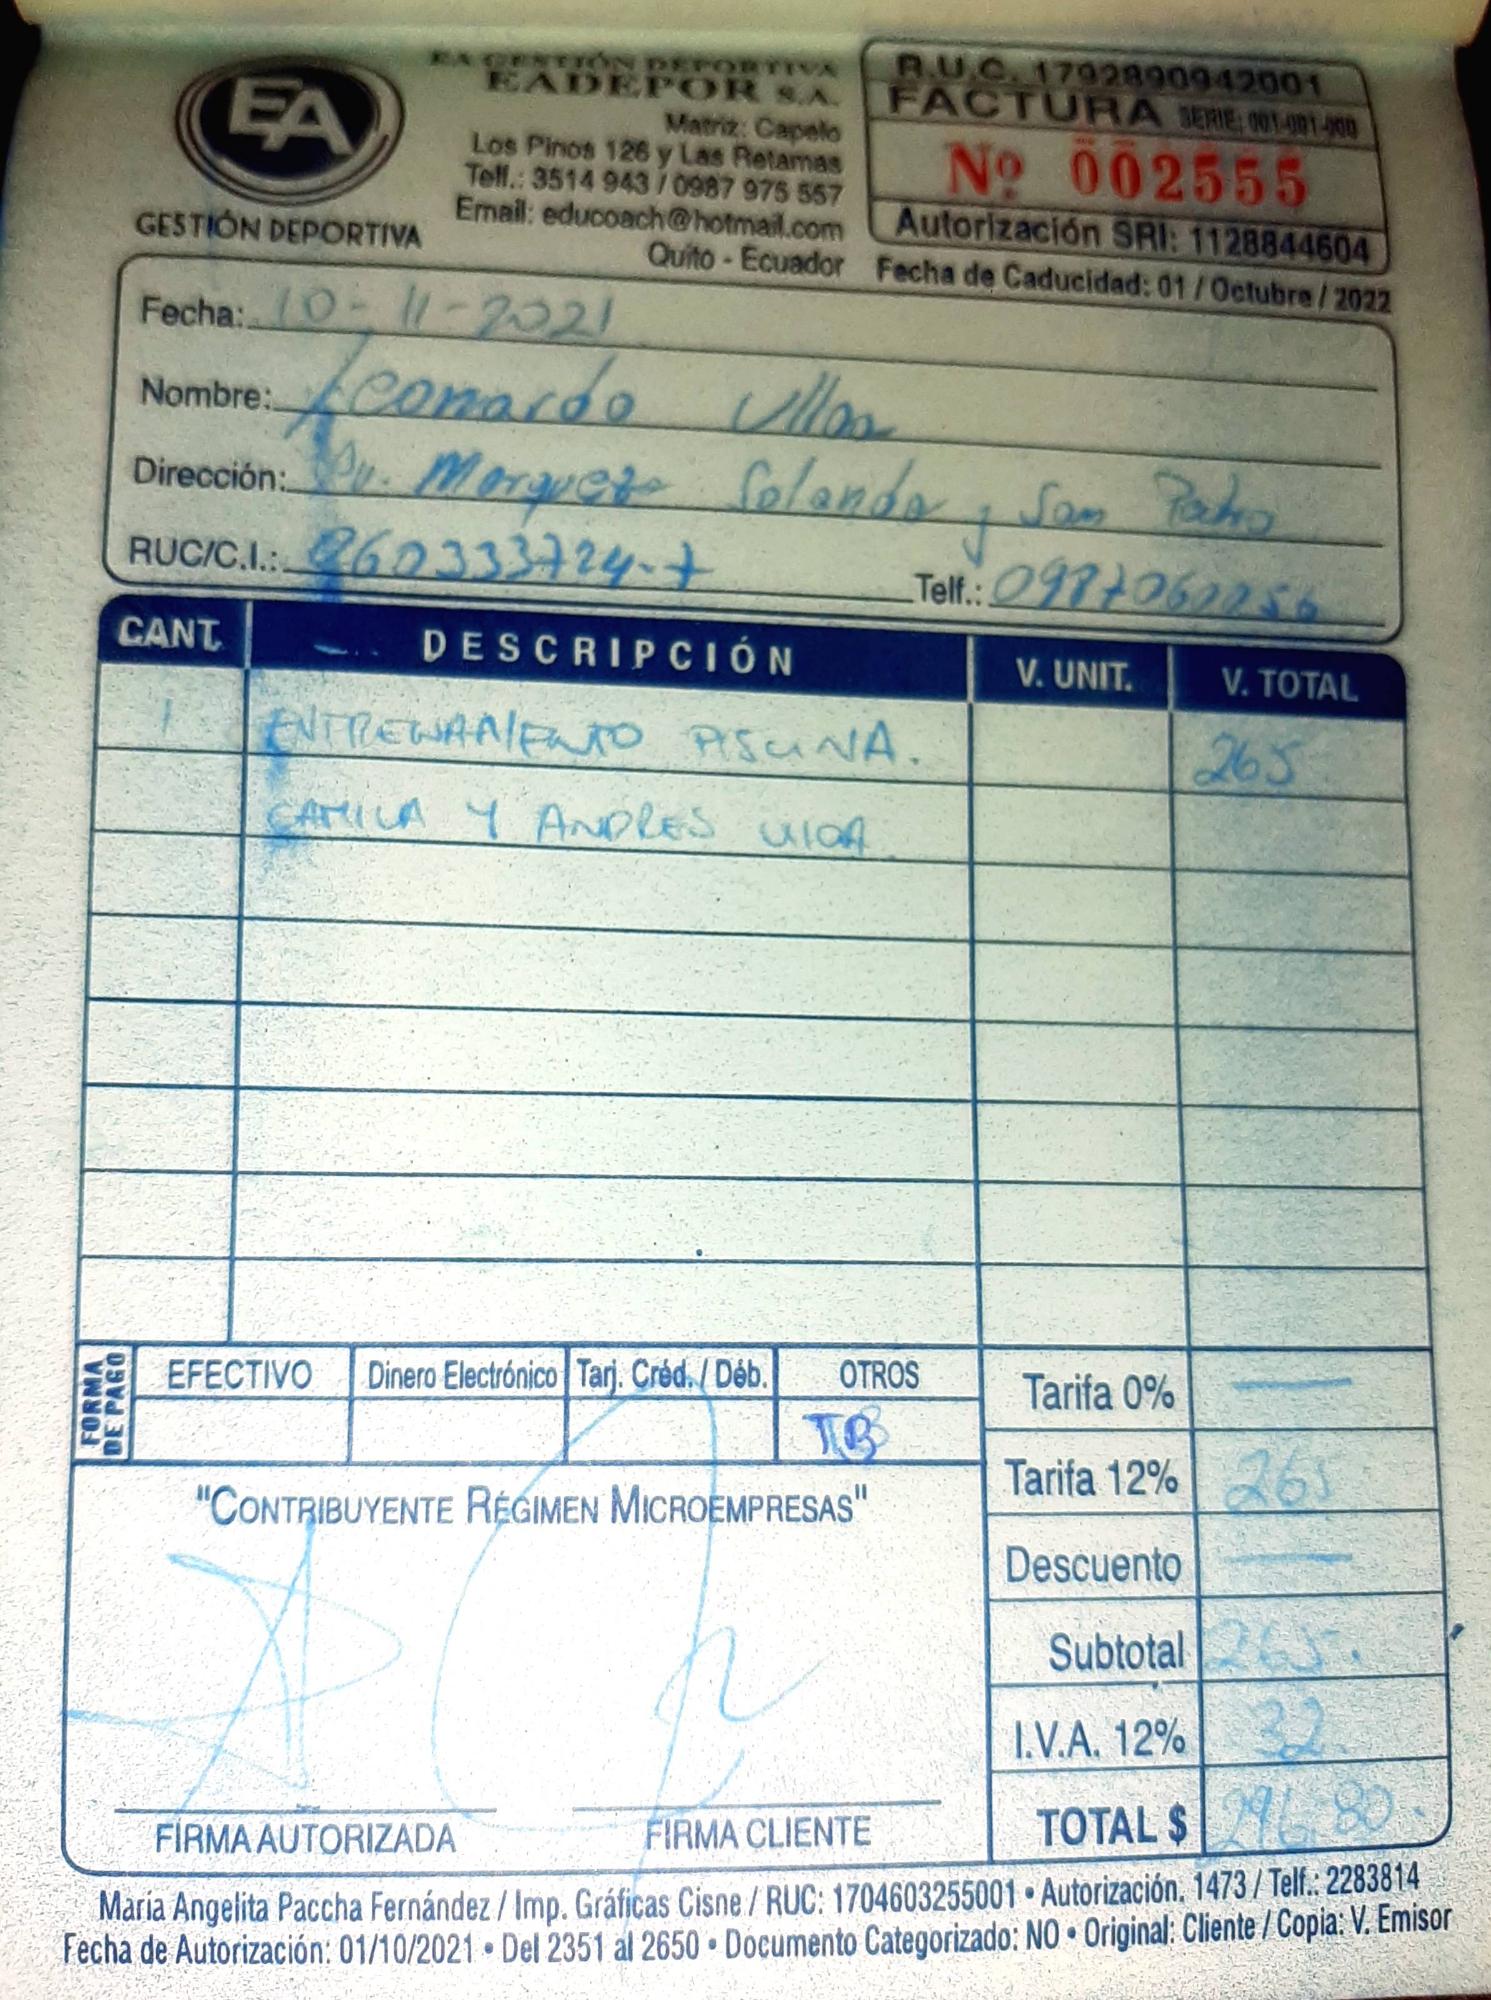 EA
GESTIÓN DEPORTIVA
EA GESTIÓN DEPORTIVA
EADEPOR S.A.
Matriz: Capelo
Los Pinos 126 y Las Retamas
Telf.: 3514 943 / 0987 975 557
Email: educoach@hotmail.com
Quito - Ecuador
R.U.C. 1792890942001
FACTURA SERIE: 001-001-000
Nº 002555
Autorización SRI: 1128844604
Fecha de Caducidad: 01 / Octubre / 2022
Fecha: 10-11-2021
Nombre: Leonardo Ulloa
Dirección: Av. Marqueza Solanda y San Pedro
RUC/C.I.: 060333724-7 Telf.:
CANT. DESCRIPCIÓN V. UNIT. V. TOTAL
1 ENTRENAMIENTO PISCINA. 265
CAMILA Y ANDRES
FORMA DE PAGO
EFECTIVO Dinero Electrónico Tarj. Créd. / Déb. OTROS
TB
Tarifa 0% —
Tarifa 12% 265
Descuento —
Subtotal 265.
I.V.A. 12% 32
TOTAL $ 296,80.
"CONTRIBUYENTE RÉGIMEN MICROEMPRESAS"
FIRMA AUTORIZADA FIRMA CLIENTE
María Angelita Paccha Fernández / Imp. Gráficas Cisne / RUC: 1704603255001 • Autorización. 1473 / Telf.: 2283814
Fecha de Autorización: 01/10/2021 • Del 2351 al 2650 • Documento Categorizado: NO • Original: Cliente / Copia: V. Emisor